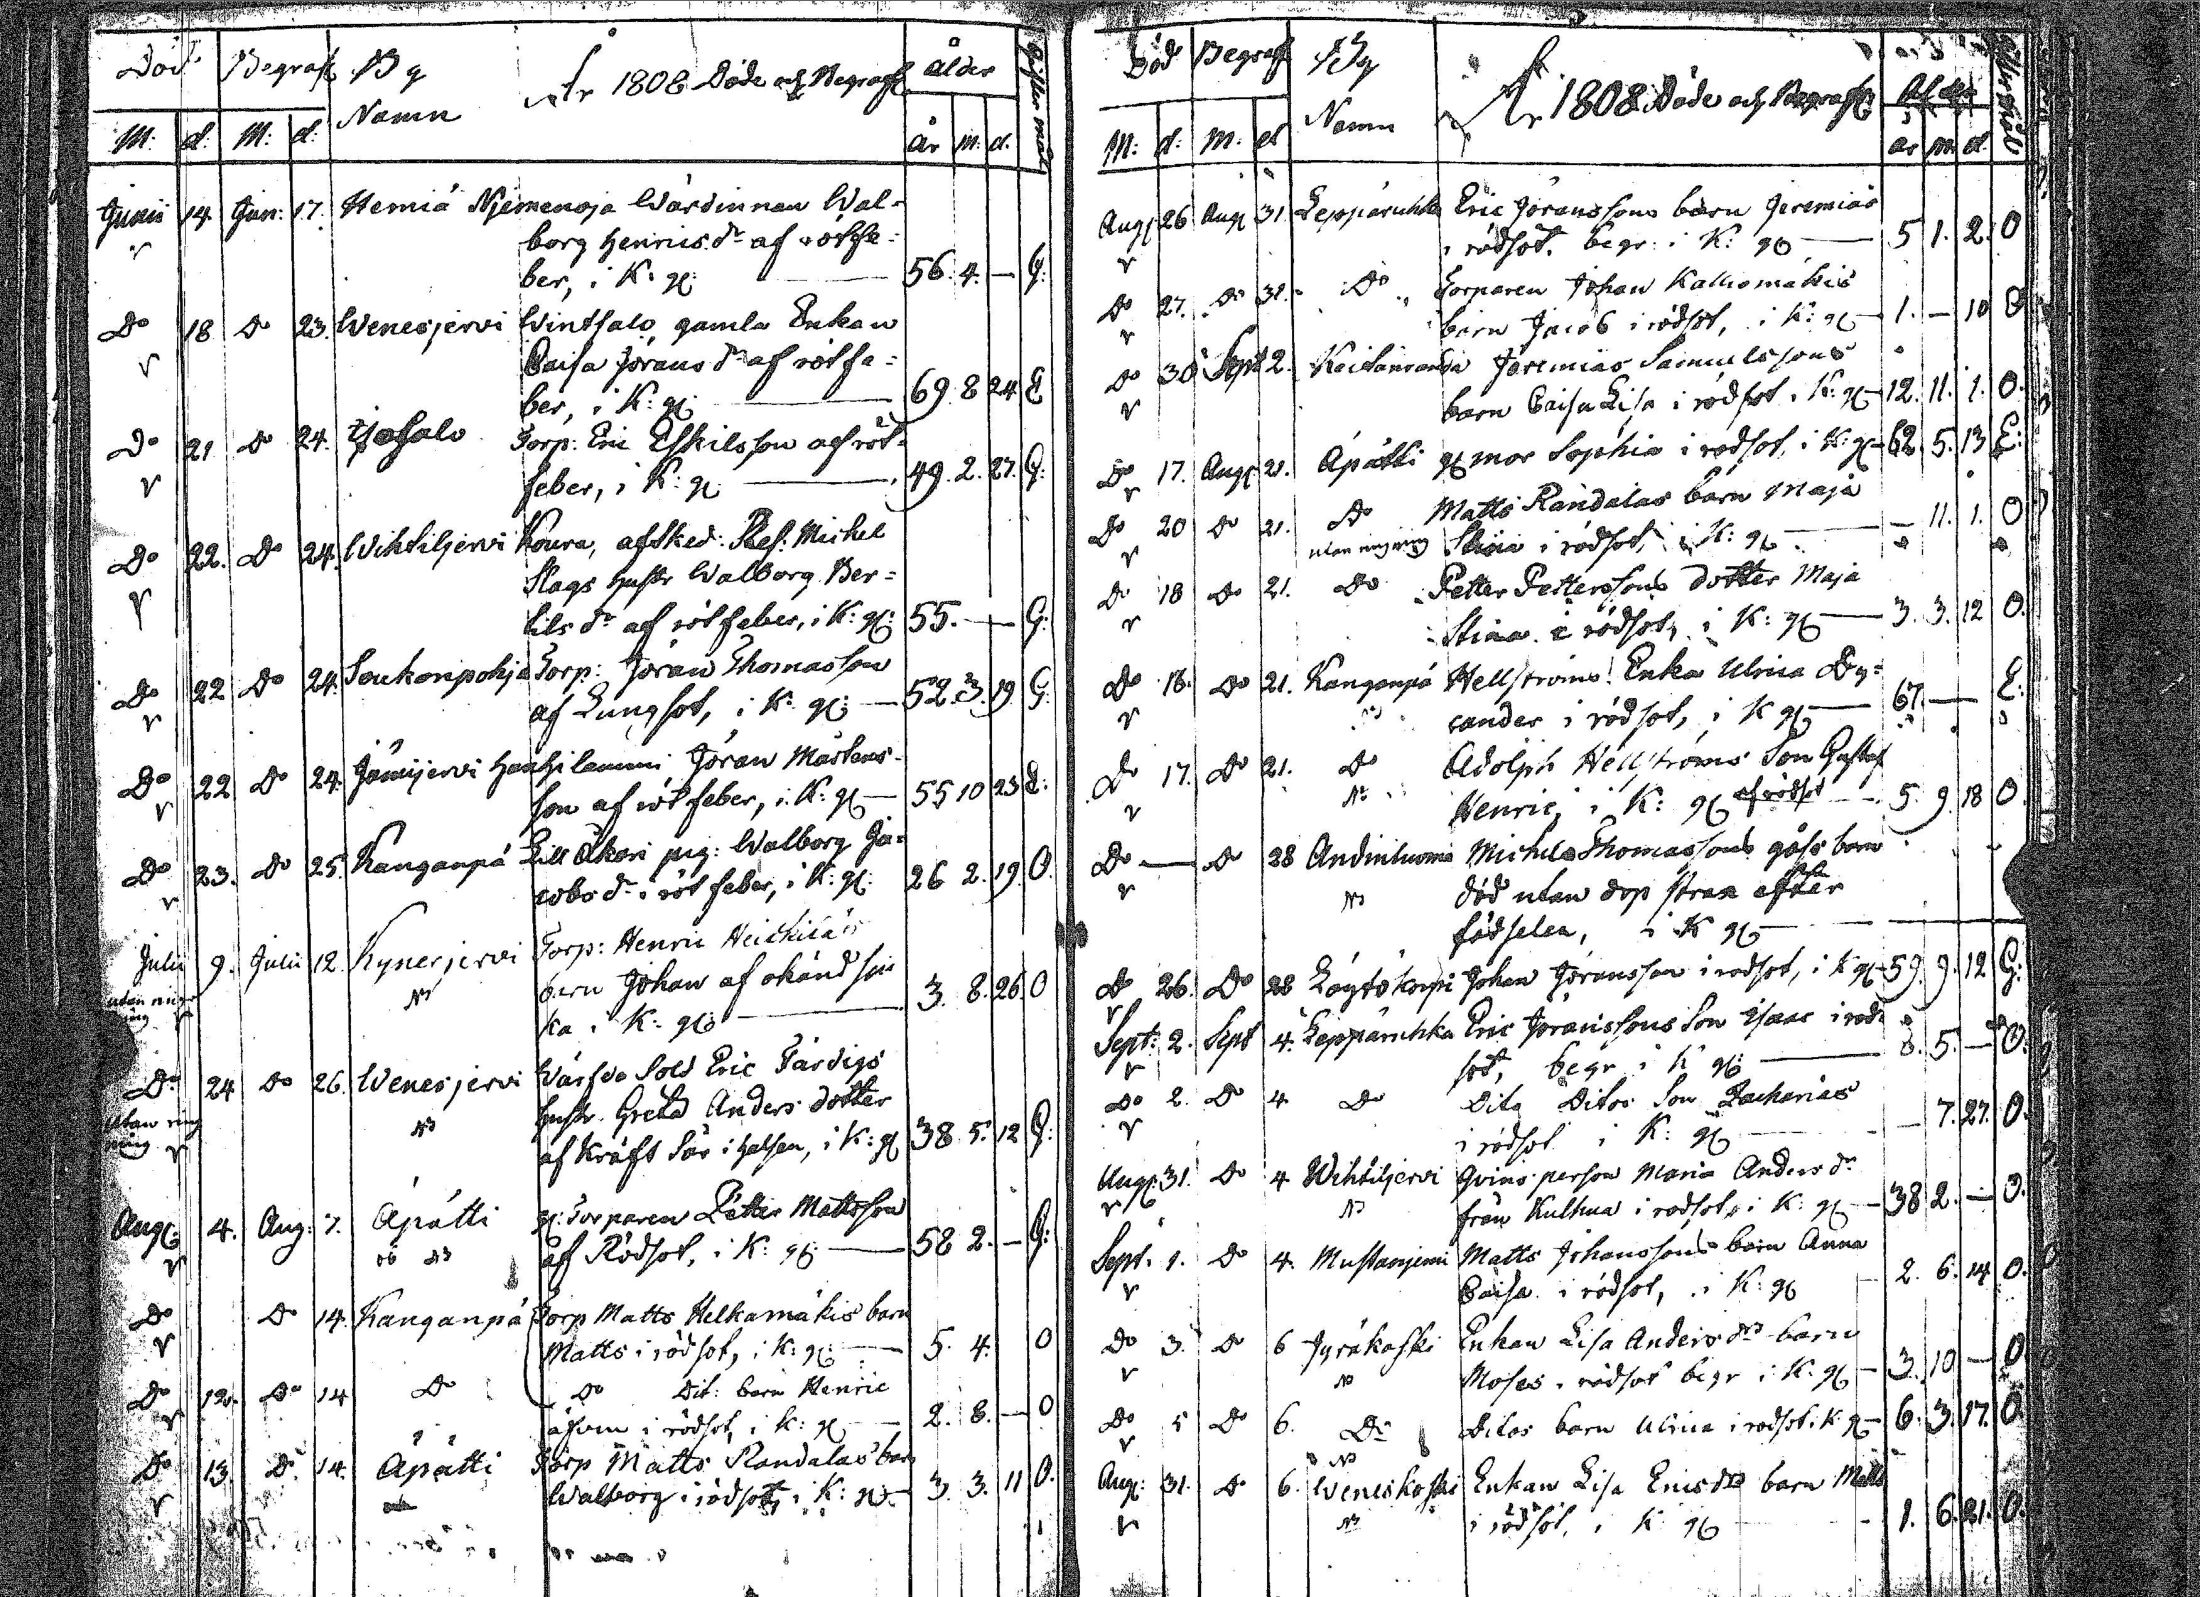 Död Begraf By Åhr 1808 Döde och Begrafne ålder
M: d: M: d: Namn år m: d.
Junii 14 Jun: 17. Hemiä Njemenoja Wärdinnan Wal=
borg Henricsdr af rötfe=
ber, i K: g: 56. 4. — G:
Do 18 Do 23. Wenesjervi Wintsalo gamla Enkan
Caisa Jöransdr af rötfe=
ber, i K: g: 69. 8 24. E
Do 21 Do 24. Torp: Eric Eskilsson af röt=
feber, i K: g: 49. 2. 27. G:
Do 22. Do 24. Wihtiljervi Koura, afsked: Ref: Michel
Slags hustr Walborg Ber=
tilsdr af rötfeber, i K: g: 55. — G:
Do 22 Do 24. Soukonpohja Torp: Jöran Thomasson
af Lungsot, i K: g: 52. 3. 19. G:
Do 22 Do 24. Jämijervi Hanhilammi Jöran Mårtens-
son af rötfeber, i K: g: 55 10 23 E:
Do 23. Do 25. Kanganpä Lill Äkäri pig: Walborg Ja=
cobsdr i rötfeber, i K: g: 26 2. 19. O.
Julii 9. Julii 12. Kynerjervi Torp: Henric Heickiläs
utan ringning barn Johan af okänd sju
ka i K: g: 3. 8. 26. O
Do 24 Do 26. Wenesjervi Wärfde Sold Eric Färdigs
utan ringning hustr. Greta Anders dotter
af kräft sår i halsen, i K: g: 38 5. 12 G:
Aug: 4. Aug: 7. Äpätti g: Torparen Petter Mattsson
af Rödsot, i K: g: 58 2. — G:
Do Do 14. Kanganpä Torp Matts Helkamäkis barn
Matts i rödsot, i K: g: 5. 4. O
Do 12. Do 14 Do Do Dit: barn Henric
äfven i rödsot, i K: g: 2. 8. — O
Do 13. Do 14. Äpätti Torp Matts Randalas barn
Walborg i rödsot, i K: g: 3. 3. 11 O.
Död Begraf By Åhr 1808 Döde och Begrafne Ålder
M: d: M: d Namn år m d.
Aug: 26 Aug 31. Leppäruhka Eric Jöranssons barn Jeremias
i rödsot. begr: i K: g: 5 1. 2. O
Do 27. Do 31. Do Torparen Johan Kalliomäkis
barn Jacob i rödsot, i K: g: 1. — 10 O
Do 30 Sept 2. Jeremias Samuelssons
barn Caisa Lisa i rödsot i K: g: 12. 11. 1. O.
Do 17. Aug: 21. Äpätti g: mor Sophia i rödsot, i K: g: 62. 5. 13 E:
Do 20 Do 21. Do Matts Randalas barn Maja
utan ringning Stina i rödsot, i K: g: — 11. 1. O
Do 18 Do 21. Do Petter Petterssons dotter Maja
Stina i rödsot, i K: g: 3. 3. 12 O.
Do 16. Do 21. Kanganpä Hellströms Enka Ulrica Dy=
cander i rödsot, i K g: 67. — E:
Do 17. Do 21. Do Adolph Hellströms Son Gustaf
Henric, i K: g: af rödsot 5. 9. 18 O.
Do — Do 28 Michels Thomassons gåsse barn
död utan dop strax efter
födselen, i K g:
Do 26. Do 28 Johan Jöransson i rödsot, i K g: 59. 9. 12 G:
Sept: 2. Sept 4. Leppäruhka Eric Jöranssons Son Isaac i röd-
sot, begr i K g: 5. — O.
Do 2. Do 4 Do Dito Ditos Son Zacharias
i rödsot i K: g: — 7. 27. O.
Aug: 31. Do 4 Wihtiljervi Qvins person Maria Andersdr
från Kulhua i rödsot, i K: g: 38 2. — O.
Sept. 1. Do 4. Mustanjemi Matts Johanssons barn Anna
Caisa i rödsot, i K: g: 2. 6. 14 O.
Do 3. Do 6 Jyräkoski Enkan Lisa Andersdrs barn
Moses i rödsot begr i K: g: 3. 10 — O
Do 5 Do 6. Do Ditos barn Ulrica i rödsot i K g: 6. 3. 17. O
Aug: 31. Do 6. Weneskoski Enkan Lisa Ericsdrs barn Matts
i rödsot, i K g: 1. 6. 21. O.